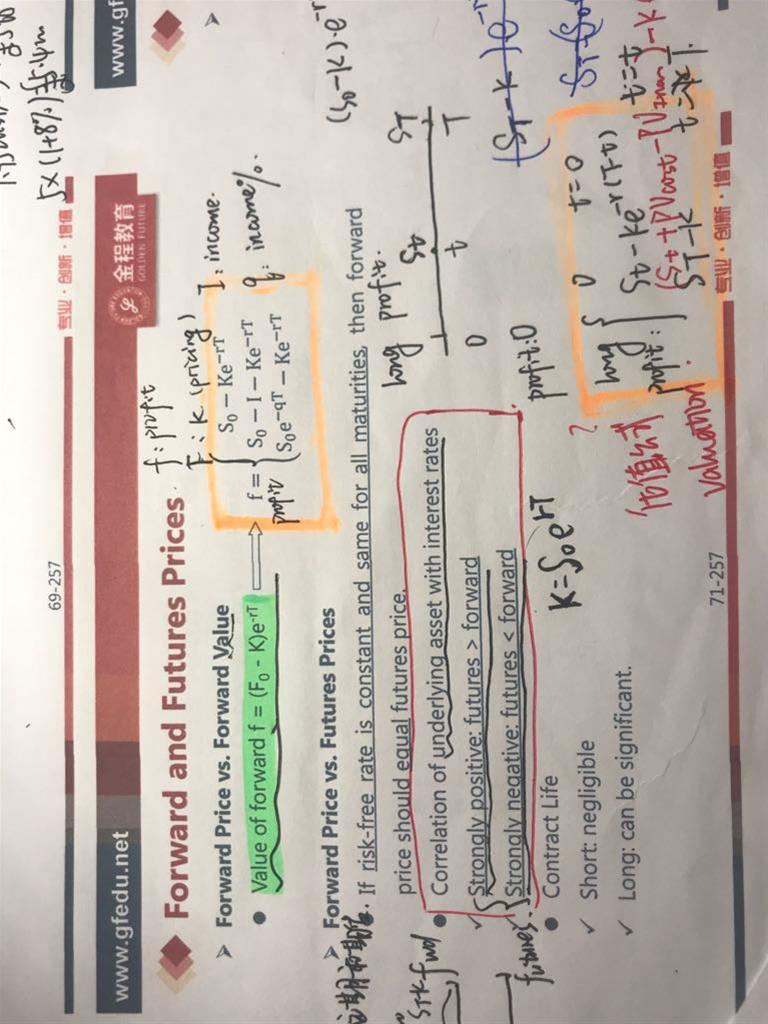 5x(1+8%)
69-257
专业·创新·增值
www.gf
www.gfedu.net
金程教育
GOLDEN FUTURE
f: profit
F: K (pricing)
I: income.
q: income%.
Forward and Futures Prices
Forward Price vs. Forward Value
Value of forward f = (F₀ - K)e⁻ʳᵀ
f = { S₀ − Ke−rT
S₀ − I − Ke−rT
S₀e−qT − Ke−rT
profit
(S₀-K)·e⁻ʳ
Forward Price vs. Futures Prices
If risk-free rate is constant and same for all maturities, then forward
price should equal futures price.
long profit.
St
ST
0
t
T
Correlation of underlying asset with interest rates
Strongly positive: futures > forward
Strongly negative: futures < forward
fwd
futures.
profit:0
(ST-K)e⁻ʳ
K=S₀eʳᵀ
Contract Life
Short: negligible
Long: can be significant.
long
profit: { 0 t=0
St-Ke⁻ʳ⁽ᵀ⁻ᵗ⁾ t=t
ST-K
估值公式?
valuation.
71-257
专业·创新·增值